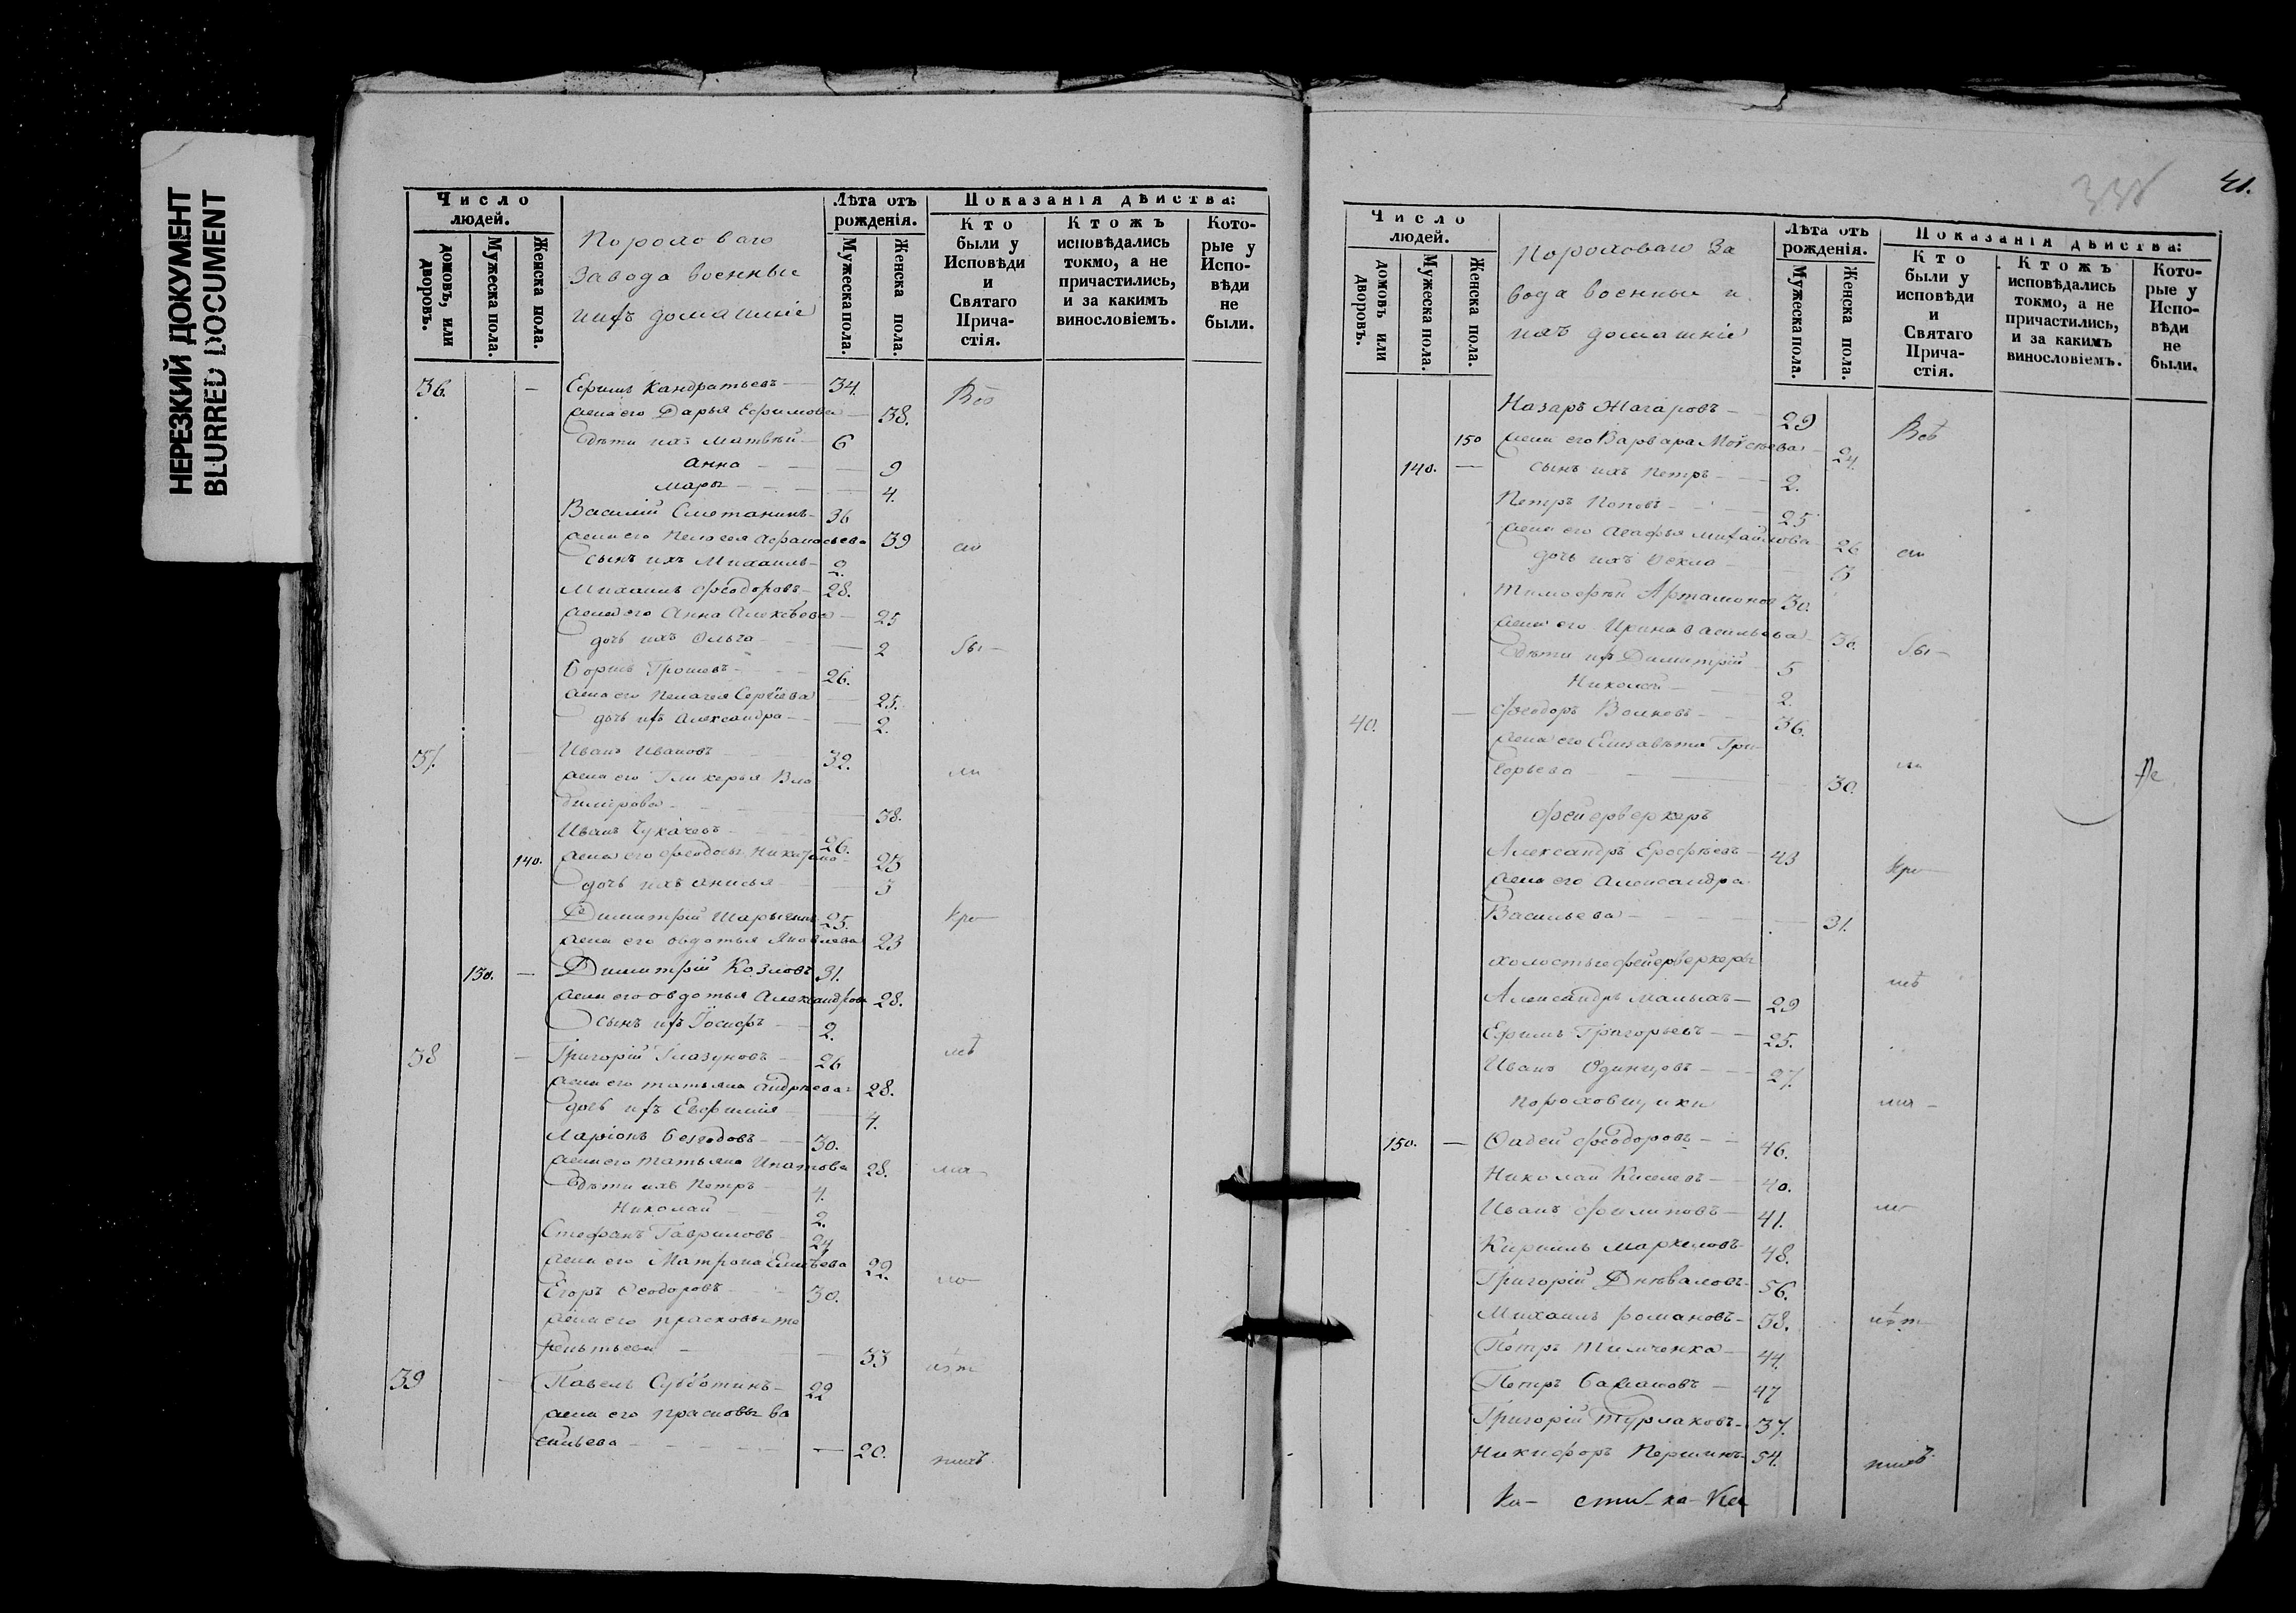 НЕРЕЗКИЙ ДОКУМЕНТ
BLURRED DOCUMENT
Число людей.
домовъ, или дворовъ.
Мужеска пола.
Женска пола.
Пороховаго
завода военные
и ихъ домашніе
Лѣта отъ рожденія.
Мужеска пола.
Женска пола.
Показанія дѣйства:
Кто были у Исповѣди и Святаго Прича-стія.
Ктожъ исповѣдались токмо, а не причастились, и за какимъ винословіемъ.
Кото-рые у Испо-вѣди не были.
36. — Ефимъ Кандратьевъ — 34.
жена его Дарья Ефимова — 38.
дѣти ихъ Матвѣй — 6
Анна — — 9
Марѳа — — 4.
Василій Сметанинъ — 36
жена его Пелагея Афанасьева 39
сынъ ихъ Михаилъ — 2.
Михаилъ Феодоровъ — 28.
жена его Анна Алексѣева — 25
дочь ихъ Ольга — 2 бы —
Борисъ Грошевъ — 26.
жена его Пелагея Сергіева 25.
дочь ихъ Александра — 2.
37. — Иванъ Ивановъ — 32.
жена его Гликерья Вла
димірова — 38.
ли
Иванъ Чукачевъ 26.
140. жена его Феодосья Никифо— 25
дочь ихъ Анисья — 3
Димитрій 25.
жена его Овдотья Яковлева 23
150. — Димитрій Козловъ 31.
жена его Овдотья Александрова 28.
сынъ ихъ Іосифъ — 2.
38 — Григорій Глазуновъ 26
жена его Татьяна Андреева 28.
дочь ихъ Евфимія — 4.
Ларіонъ 30.
жена его Татьяна Ипатова 28.
дѣти ихъ Петръ 4.
Николай 2.
Стефанъ Гавриловъ 24
жена его Матрона 22.
Егоръ Ѳеодоровъ 30.
жена его Прасковья
33
39 — Павелъ Субботинъ — 22
жена его Прасковья Ва
сильева — — 20.
41.
338
Число людей.
домовъ или дворовъ.
Мужеска пола.
Женска пола.
Пороховаго за
вода военные и
ихъ домашніе
Лѣта отъ рожденія.
Мужеска пола.
Женска пола.
Показанія дѣйства:
Кто были у исповѣди и Святаго Прича-стія.
Ктожъ исповѣдались токмо, а не причастились, и за какимъ винословіемъ.
Кото-рые у Испо-вѣди не были.
Назаръ 29 Всѣ
150 жена его Варвара Моѵсеева 24.
140. — сынъ ихъ Петръ — 2.
Петръ Поповъ — 25
жена его Агафья Михайлова 26
дочь ихъ Ѳекла — 3
Тимофѣй Артамоновъ 30.
жена его Ирина Васильева 30. бы —
дѣти ихъ Димитрій 5
Николай — 2.
40. — Феодоръ Волковъ — 36.
жена его Елизавета Гри—
горьева — 30.
Не
фейерверкеръ
Александръ Ерофѣевъ — 43
жена его Александра
Васильева — 31.
холостые фейерверкеры
Александръ Малыхъ — 29
Ефимъ Григорьевъ — 25.
Иванъ Одинцовъ — 27.
пороховщики
150. — Ѳадей Феодоровъ — 46.
Николай Киселевъ — 40.
Иванъ Филиповъ — 41.
Кирилъ Маркеловъ 48.
Григорій 56.
Михаилъ Романовъ — 58.
Петръ Тимченка — 44.
Петръ 47
Григорій Турлаковъ — 37.
Никифоръ Першинъ 54.